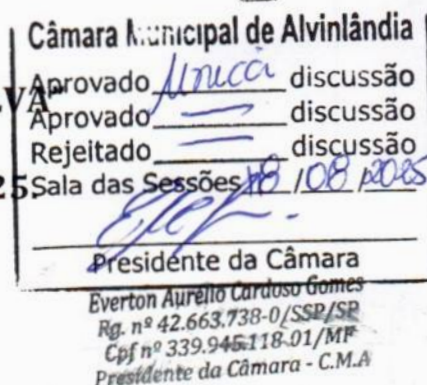 Câmara Municipal de Alvinlândia
Aprovado Única discussão
VA"
Aprovado — discussão
Rejeitado — discussão
25. Sala das Sessões 18 / 08 / 2025
Presidente da Câmara
Everton Aurélio Cardoso Gomes
Rg. nº 42.663.738-0/SSP/SP
Cpf nº 339.945.118-01/MF
Presidente da Câmara - C.M.A